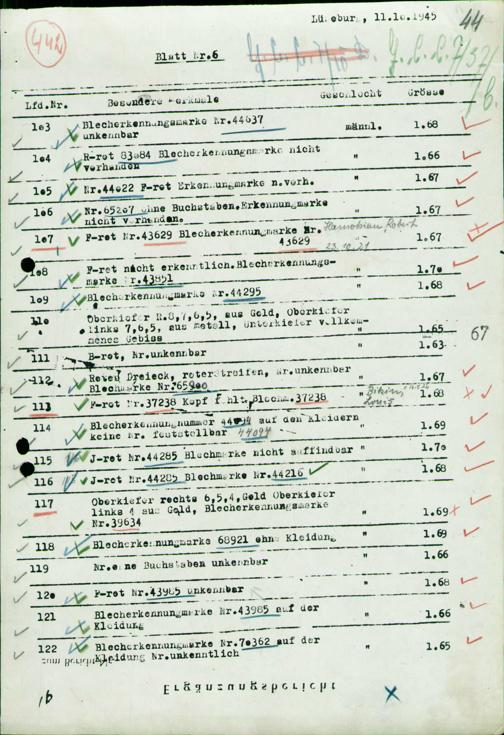 44
442
Lüneburg, 11.10.1945
Blatt Nr.6
Lfd.Nr. Besondere Merkmale Geschlecht Grösse
103 Blecherkennungsmarke Nr.44637 männl. 1.68
unkennbar
104 R-rot 83084 Blecherkennungsmarke nicht " 1.66
vorhanden
105 Nr.44022 F-rot Erkennungmarke n.vorh. " 1.67
106 Nr.65267 ohne Buchstaben.Erkennungmarke " 1.67
nicht vorhanden.
107 F-rot Nr.43629 Blecherkennungmarke Nr. 1.67
43629
23.10.21
108 F-rot nicht erkenntlich.Blecherkennungs- " 1.70
marke Nr.43851
109 Blecherkennungmarke Nr.44295 " 1.68
110 Oberkiefer R.8,7,6,5, aus Gold, Oberkiefer
links 7,6,5, aus Metall, Unterkiefer vollkom-
menes Gebiss " 1.65
67
111 B-rot, Nr.unkennbar " 1.63
112 Roten Dreieck, roterstreifen, Nr.unkennbar " 1.67
Blechmarke Nr.65900
113 F-rot Nr.37238 Kopf fehlt.Blechm.37238 1.68
114 Blecherkennungnummer auf den Kleidern " 1.69
keine Nr. feststellbar 44094
115 J-rot Nr.44285 Blechmarke nicht auffindbar " 1.70
116 J-rot Nr.44285 Blechmarke Nr.44216 " 1.68
117 Oberkiefer rechts 6,5,4,Gold Oberkiefer
links 4 aus Gold, Blecherkennungsmarke " 1.69
Nr.39634
118 Blecherkennungmarke 68921 ohne Kleidung " 1.69
119 Nr.ohne Buchstaben unkennbar " 1.66
120 F-rot Nr.43985 unkennbar " 1.68
121 Blecherkennungmerke Nr.43985 auf der " 1.66
Kleidung
122 Blecherkennungmarke Nr.70362 auf der " 1.65
Kleidung Nr.unkenntlich
zum Bericht
Ergänzungsbericht